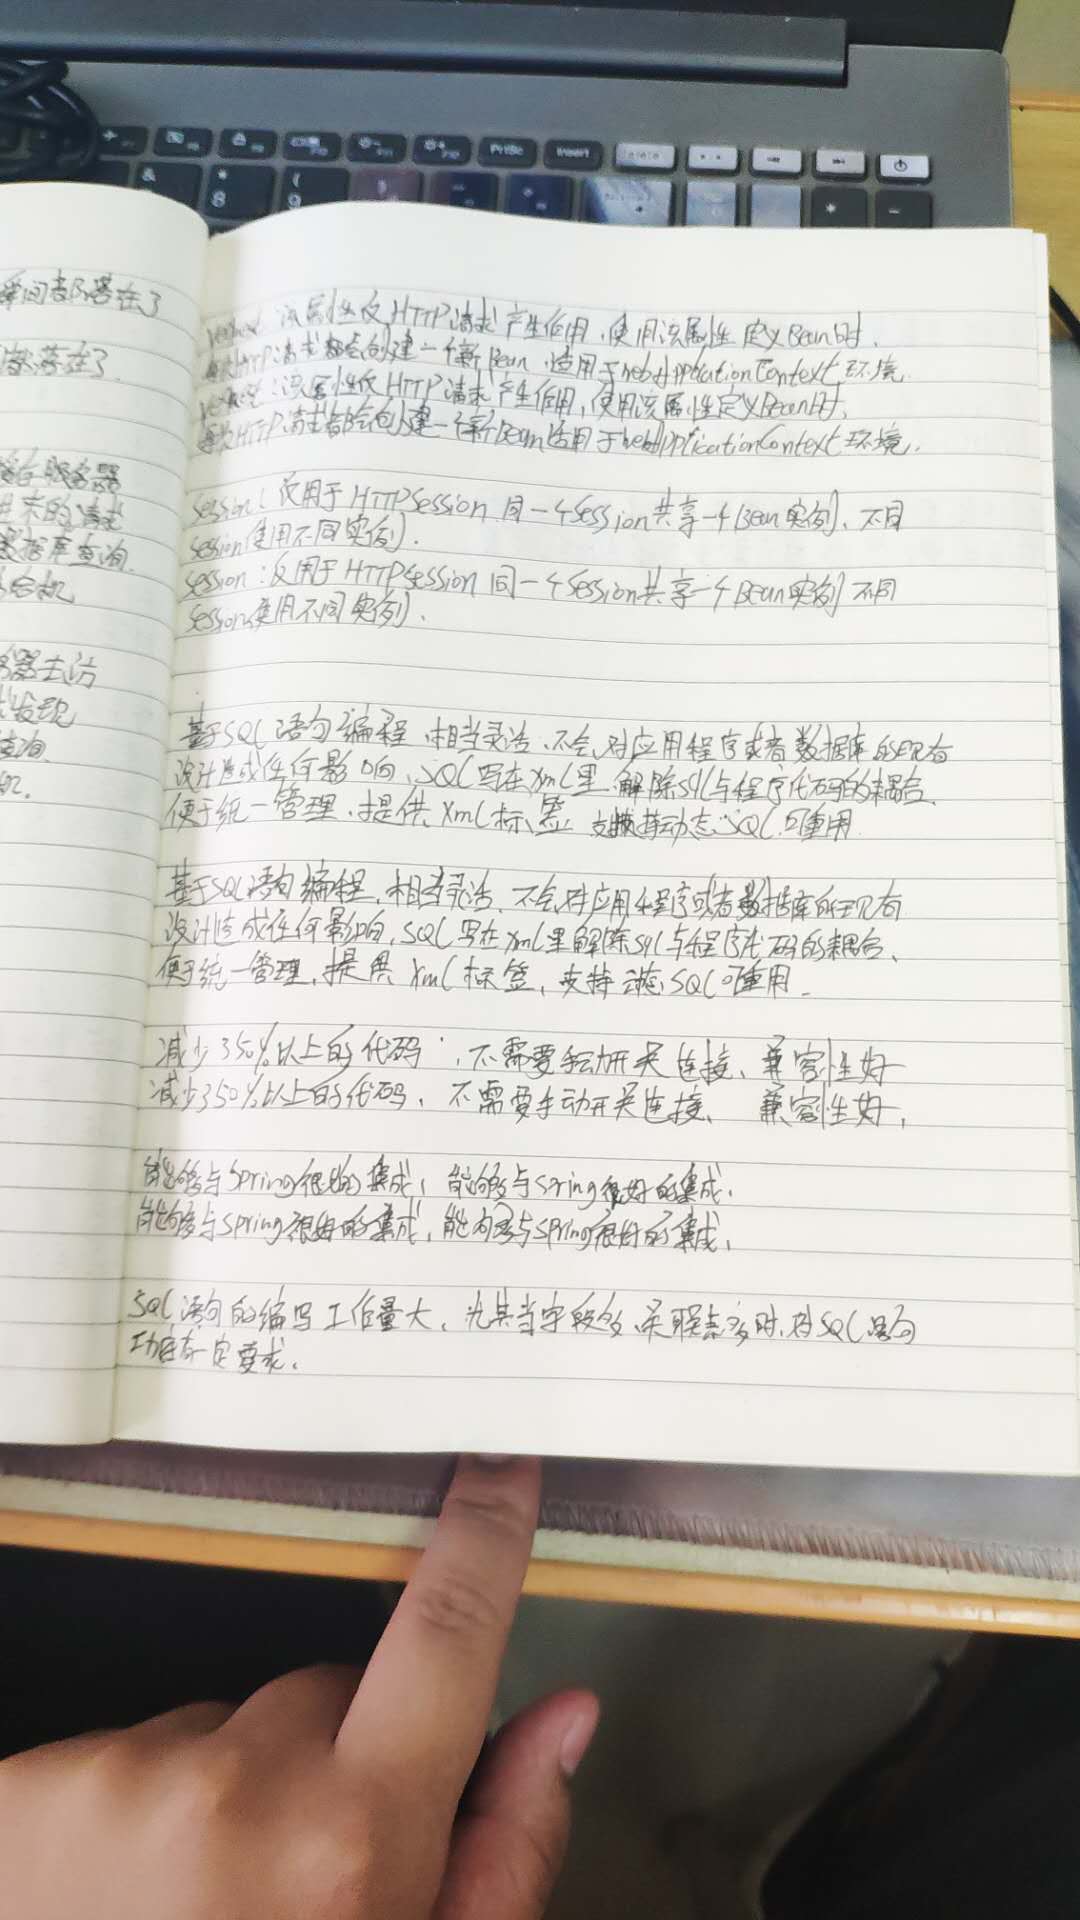 瞬间都落在了
落在了
服务器
进来的请求
数据库查询
给机
器去访
发现
查询
机.
PrtSc
Insert
Delete
&
*
8
(
9
*
-
request: 该属性仅HTTP请求产生作用,使用该属性定义Bean时,
每次HTTP请求都会创建一个新Bean,适用于WebApplicationContext环境.
request:该属性仅HTTP请求产生作用,使用该属性定义Bean时,
每次HTTP请求都会创建一个新Bean适用于WebApplicationContext环境,
session: 仅用于HTTP Session 同一个Session共享一个Bean实例、不同
session使用不同实例.
session:仅用于HTTP Session 同一个Session共享一个Bean实例 不同
session使用不同实例.
基于SQL语句编程,相当灵活,不会对应用程序或者数据库的现有
设计造成任何影响,SQL写在xml里,解除sql与程序代码的耦合,
便于统一管理,提供Xml标签 支持动态SQL可重用
基于SQL语句编程,相当灵活,不会对应用程序或者数据库的现有
设计造成任何影响,SQL写在Xml里解除sql与程序代码的耦合、
便于统一管理,提供Xml标签,支持动态SQL可重用.
减少了50%以上的代码,不需要手动开关连接、兼容性好
减少了50%以上的代码,不需要手动开关连接、兼容性好,
能够与Spring很好的集成,能够与Spring很好的集成,
能够与Spring很好的集成,能够与Spring很好的集成,
SQL语句的编写工作量大,尤其当字段多、关联表多时,对SQL语句
功底有一定要求.